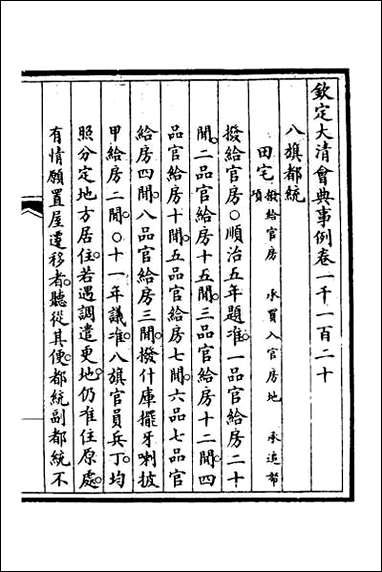 欽定大清會典事例卷一千一百二十
八旗都統
田宅撥給官房 承買入官房地 承追帑項
撥給官房○順治五年題准一品官給房二十
間二品官給房十五間三品官給房十二間四
品官給房十間五品官給房七間六品七品官
給房四間八品官給房三間撥什庫擺牙喇披
甲給房二間○十一年議准八旗官員兵丁均
照分定地方居住若遇調遣更地仍准住原處
有情願置屋遷移者聽從其便都統副都統不